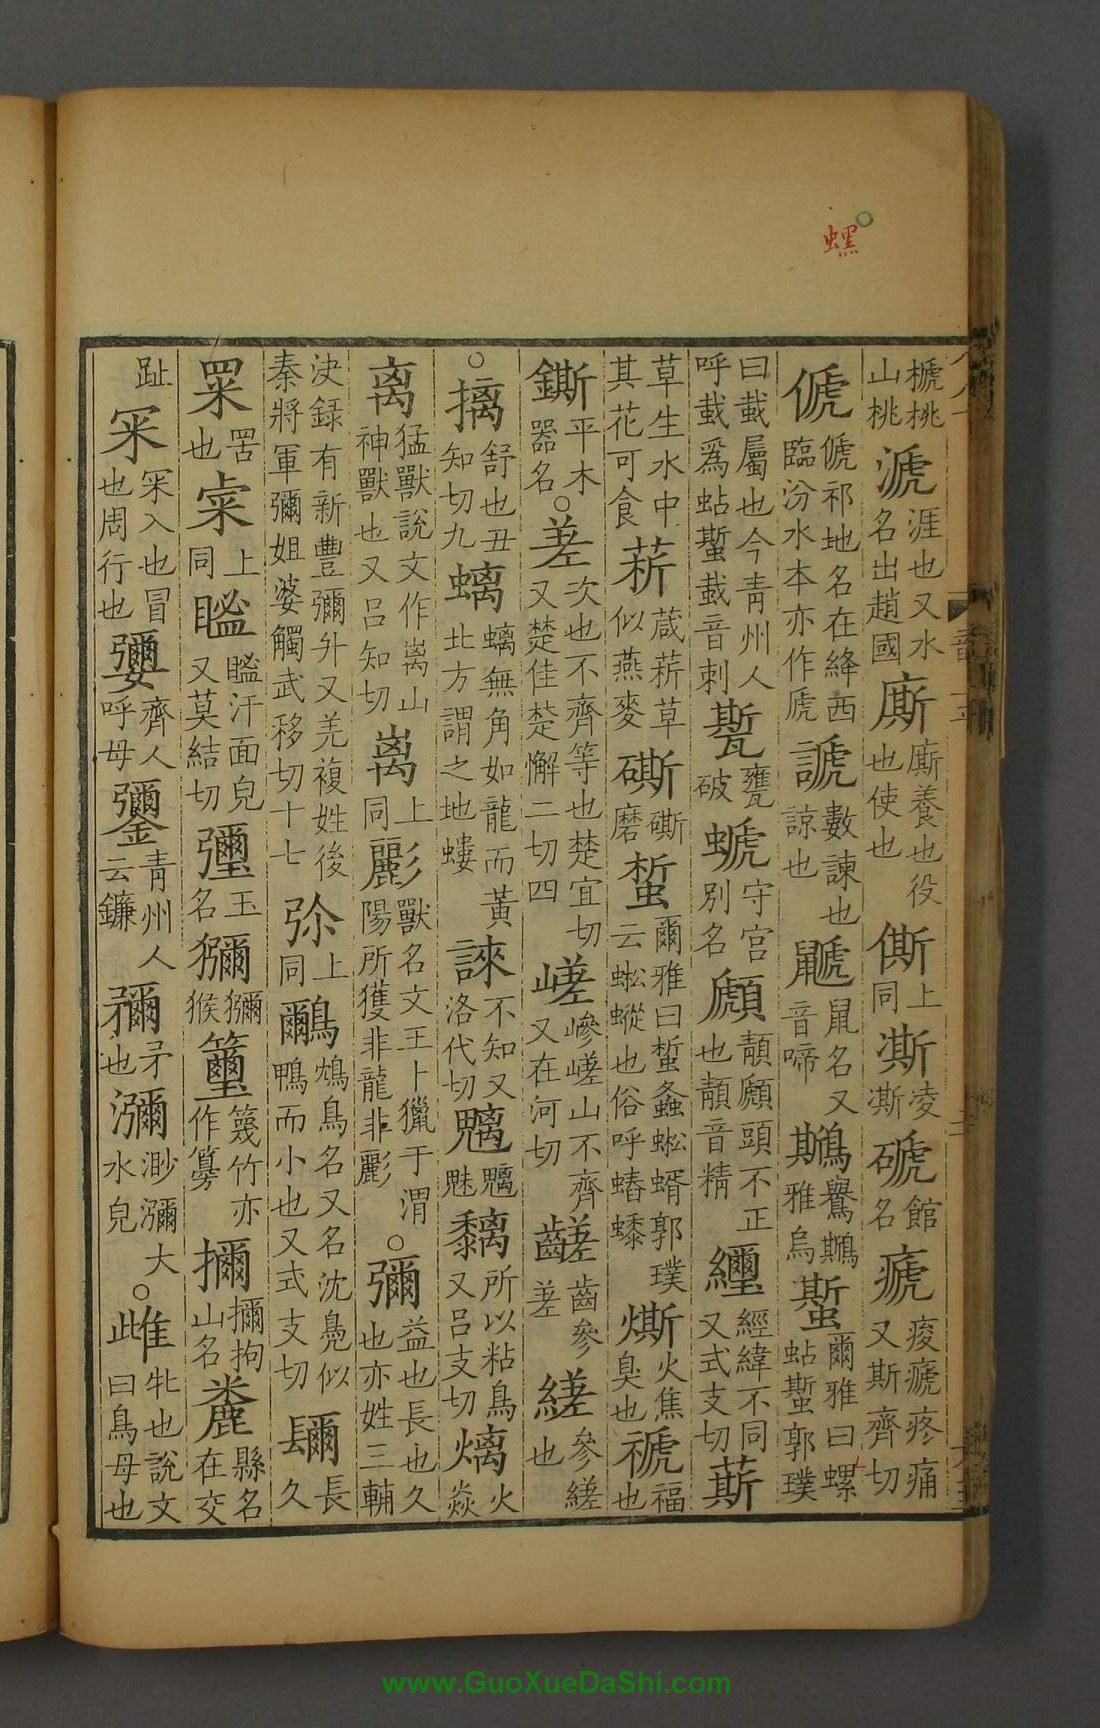 螺
榹桃山桃㴲涯也又水名出趙國廝廝養也役也使也㒋上同澌凌澌磃館名㾷痠㾷疼痛又斯齊切
傂傂祁地名在絳西臨汾水本亦作虒謕數諫也諒也鼶鼠名又音啼鷉鸒鷉斯雅烏蟴爾雅曰螺蛅蟴郭璞
曰蛓屬也今青州人呼蛓為蛅蟴蛓音刺㽄甕破螔守宮別名頋頋頭不正也音精纚經緯不同又式支切蕲
草生水中其花可食菥葴菥草似燕麥磃磨蜤爾雅曰蜤螽蜙蝑郭璞云蜙蝑也俗呼蝽䗥燍火焦臭也禠福也
鐁平木器名○差次也不齊等也楚宜切又楚佳楚懈二切四嵯嵾嵯山不齊又在河切齹齒參差縒參縒也
○摛舒也丑知切九螭螭無角如龍而黃北方謂之地螻誺不知又洛代切魑魑魅黐所以粘鳥又呂支切𤎖火焱
离猛獸說文作离山神獸也又呂知切离上同彲獸名文王卜獵于渭陽所獲非龍非彲○彌益也長也久也亦姓三輔
決錄有新豐彌升又羌複姓後秦將軍彌姐婆觸武移切十七弥上同鸍鳼鳥名又名沈鳧似鴨而小也又式支切镾長久
冞罟也䍘上同䁇䁇汗面皃又莫結切瓕玉名獼獼猴籋篾竹亦作簩擟擟拘山名麊縣名在交
趾冞冞入也冒也周行也㜷齊人呼母䥸青州人云鐮𥎖矛也瀰渺瀰大水皃○雌牝也說文曰鳥母也
www.GuoXueDaShi.com